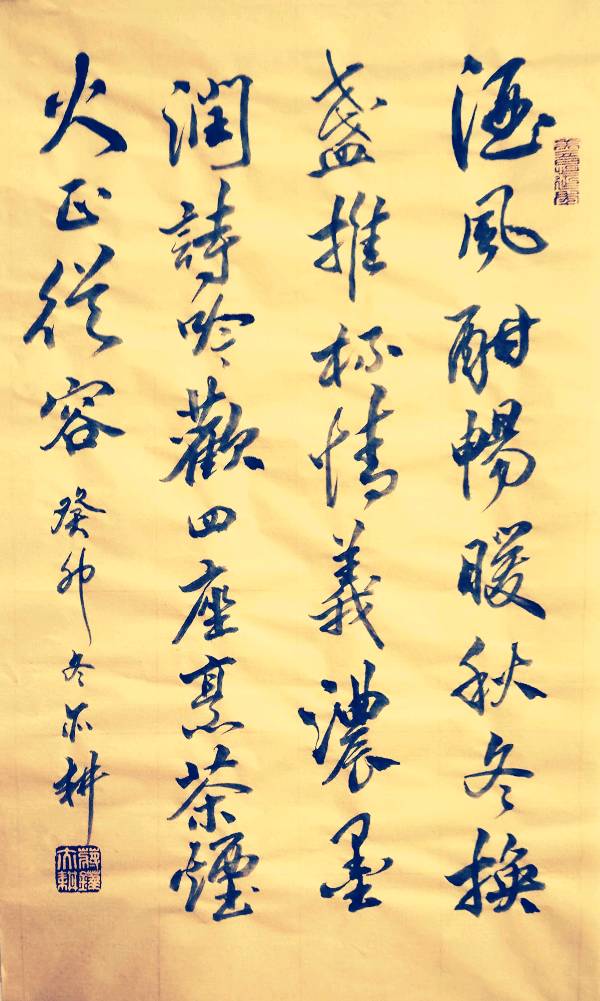 酒風酣暢暖秋冬換
盞推杯情義濃墨
潤詩吟歡四座烹茶煙
火正從容
癸卯冬亦耕